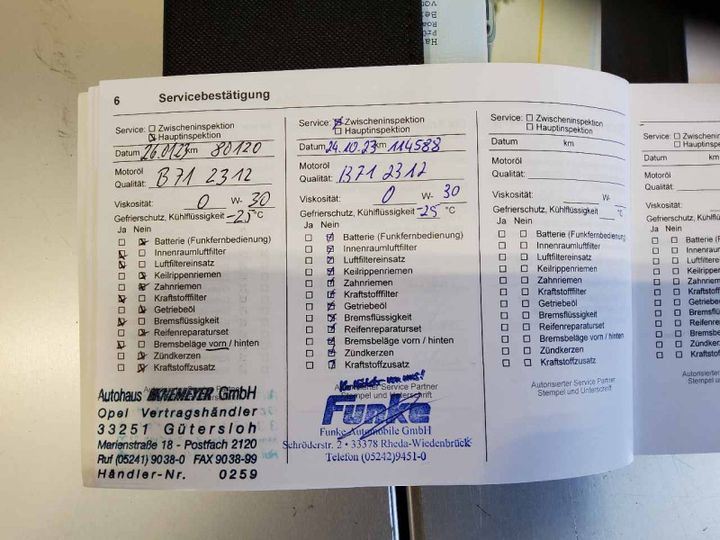 6 Servicebestätigung
Service: Zwischeninspektion
Hauptinspektion
Datum 26.01.23 km 80120
Motoröl
Qualität: B71 2312
Viskosität: 0 W- 30
Gefrierschutz, Kühlflüssigkeit -25 °C
Ja Nein
Batterie (Funkfernbedienung)
Innenraumluftfilter
Luftfiltereinsatz
Keilrippenriemen
Zahnriemen
Kraftstofffilter
Getriebeöl
Bremsflüssigkeit
Reifenreparaturset
Bremsbeläge vorn / hinten
Zündkerzen
Kraftstoffzusatz
Autohaus GmbH
Opel Vertragshändler
33251 Gütersloh
Marienstraße 18 - Postfach 2120
Ruf (05241) 9038-0 FAX 9038-99
Händler-Nr. 0259
Service: Zwischeninspektion
Hauptinspektion
Datum 24.10.23 km 114588
Motoröl
Qualität: B71 2312
Viskosität: 0 W- 30
Gefrierschutz, Kühlflüssigkeit -25 °C
Ja Nein
Batterie (Funkfernbedienung)
Innenraumluftfilter
Luftfiltereinsatz
Keilrippenriemen
Zahnriemen
Kraftstofffilter
Getriebeöl
Bremsflüssigkeit
Reifenreparaturset
Bremsbeläge vorn / hinten
Zündkerzen
Kraftstoffzusatz
Autorisierter Service Partner
Stempel und Unterschrift
Funke
Funke Automobile GmbH
Schröderstr. 2 • 33378 Rheda-Wiedenbrück
Telefon (05242)9451-0
Service: Zwischeninspektion
Hauptinspektion
Datum km
Motoröl
Qualität:
Viskosität: W-
Gefrierschutz, Kühlflüssigkeit °C
Ja Nein
Batterie (Funkfernbedienung)
Innenraumluftfilter
Luftfiltereinsatz
Keilrippenriemen
Zahnriemen
Kraftstofffilter
Getriebeöl
Bremsflüssigkeit
Reifenreparaturset
Bremsbeläge vorn / hinten
Zündkerzen
Kraftstoffzusatz
Autorisierter Service Partner
Stempel und Unterschrift
Service:
Datum
Motoröl
Qualität:
Viskosität:
Gefrierschutz, Kühlflüssigk
Ja Nein
Batterie (Funk
Innenraumluft
Luftfiltereins
Keilrippenri
Zahnriemen
Kraftstofffilt
Getriebeöl
Bremsflüs
Reifenrep
Bremsbel
Zündker
Kraftsto